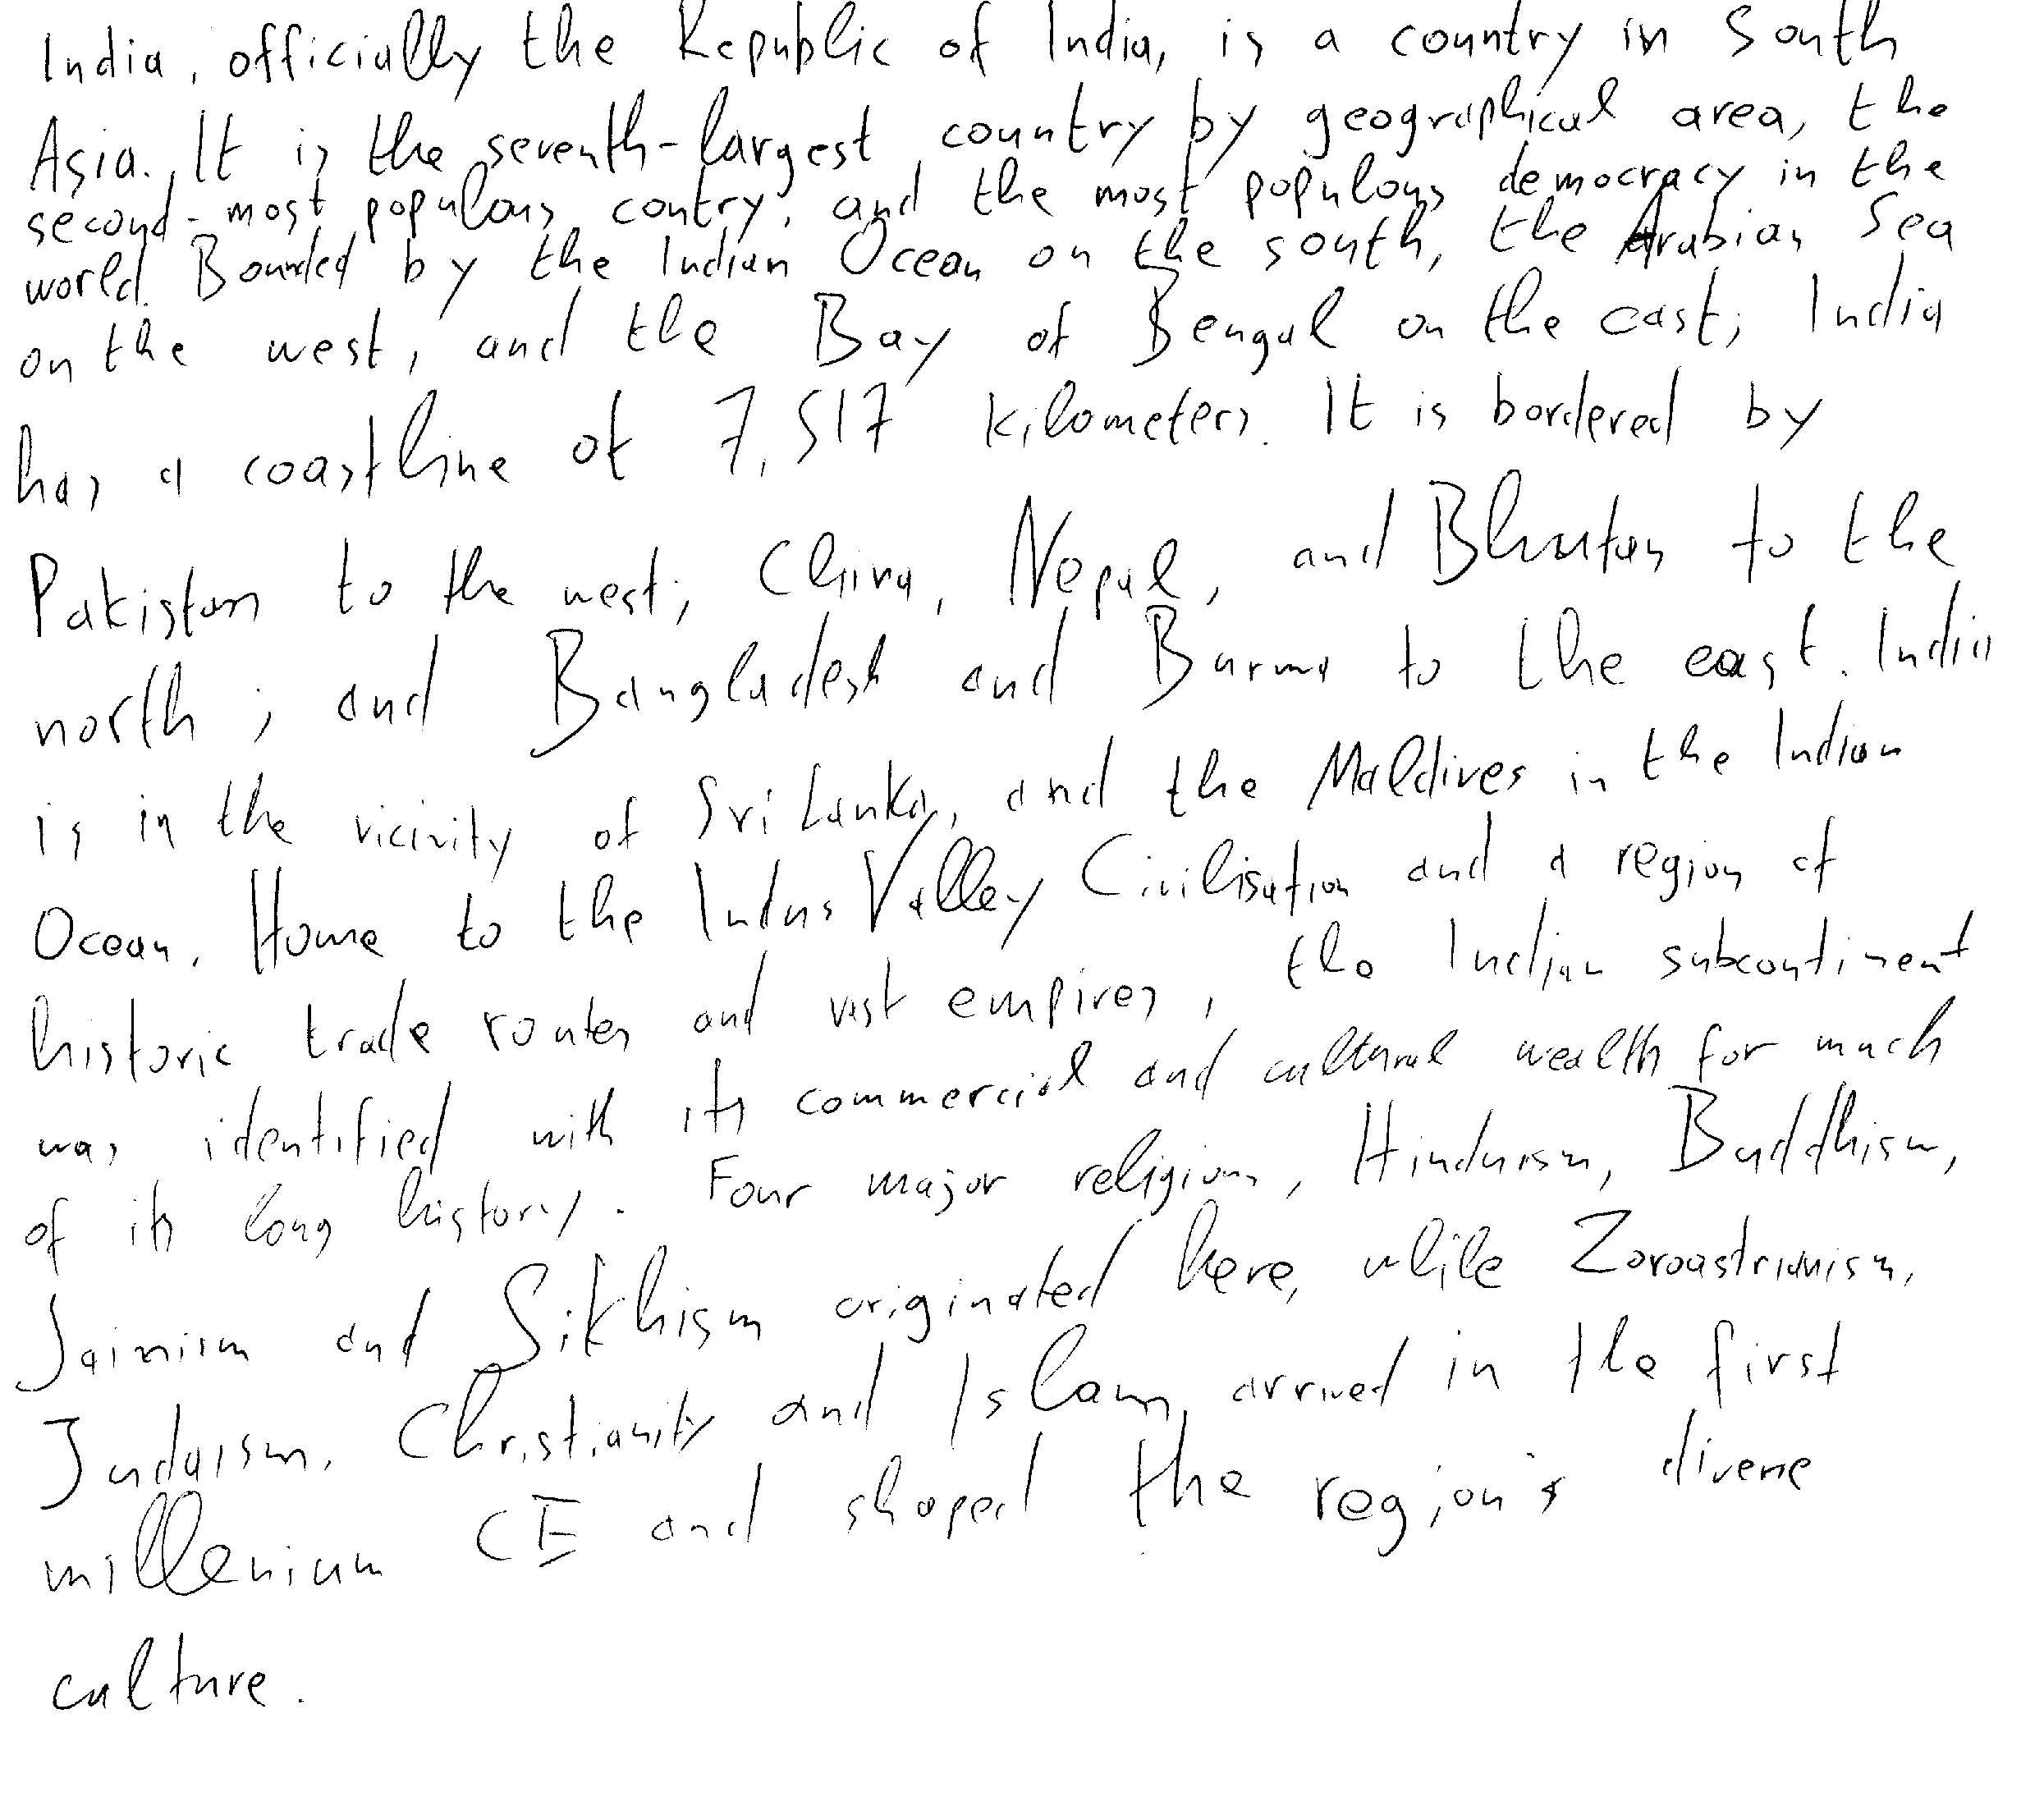 India, officially the Republic of India, is a country in South
Asia. It is the seventh-largest country by geographical area, the
second-most populous contry, and the most populous democracy in the
world. Bounded by the Indian Ocean on the south, the Arabian Sea
on the west, and the Bay of Bengal on the east, India
has a coastline of 7,517 kilometers. It is bordered by
Pakistan to the west; China, Nepal, and Bhutan to the
north; and Bangladesh and Burma to the east. India
is in the vicinity of Sri Lanka, and the Maldives in the Indian
Ocean. Home to the Indus Valley Civilisation and a region of
historic trade routes and vast empires, the Indian subcontinent
was identified with its commercial and cultural wealth for much
of its long history. Four major religions, Hinduism, Buddhism,
Jainism and Sikhism originated here, while Zoroastrianism,
Judaism, Christianity and Islam arrived in the first
millenium CE and shaped the region's diverse
culture.